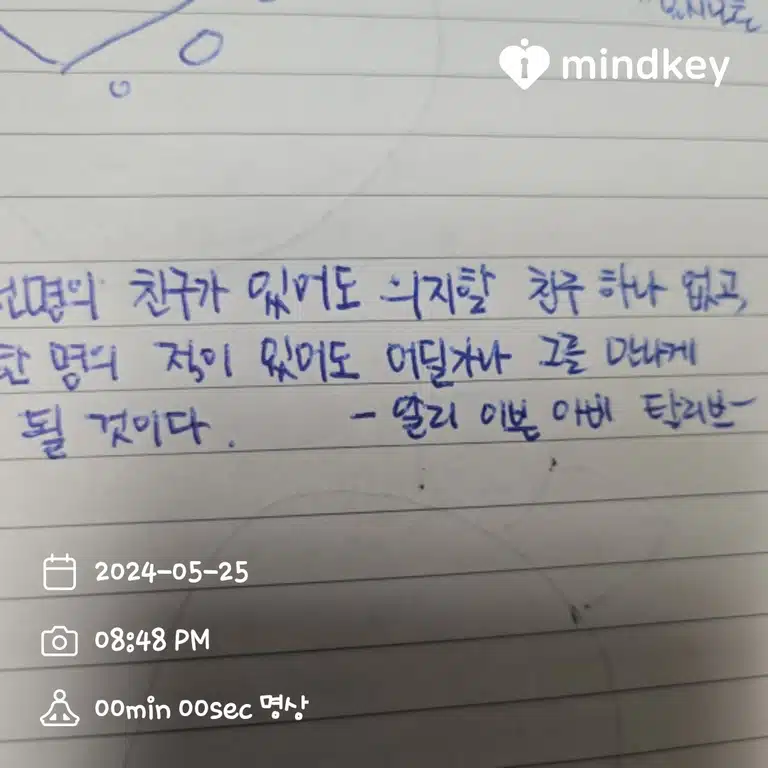 mindkey
친구가 있어도 의지할 친구 하나 없고,
한 명의 적이 있어도 어딜가나 그를 만나게
될 것이다. - 알리 이븐 아비 탈리브-
2024-05-25
08:48 PM
00min 00sec 명상